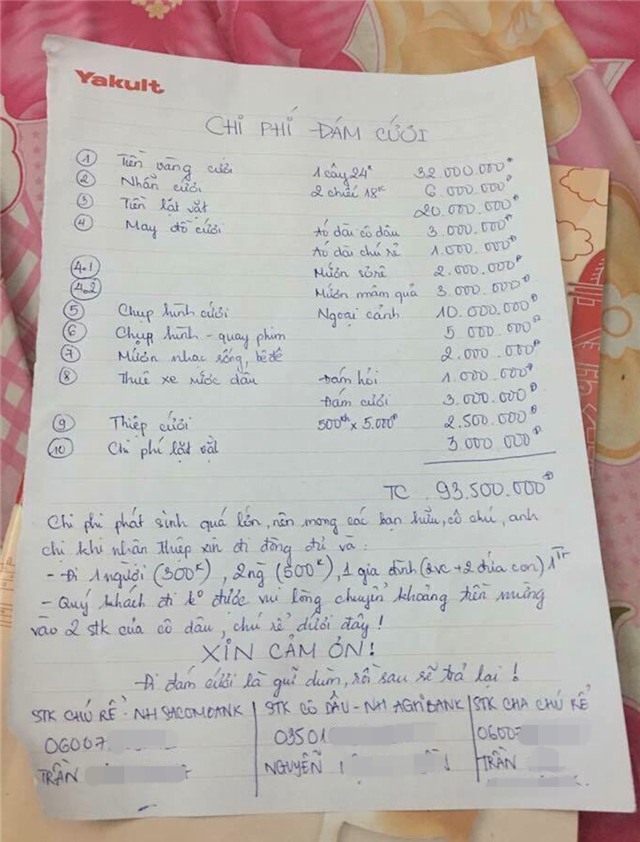 Yakult
CHI PHÍ ĐÁM CƯỚI
1 Tiền vàng cưới 1 cây 24k 32.000.000đ
2 Nhẫn cưới 2 chiếc 18k 6.000.000đ
3 Tiền lặt vặt 20.000.000đ
4 May đồ cưới Áo dài cô dâu 3.000.000đ
Áo dài chú rể 1.000.000đ
4.1 Mướn soire 2.000.000đ
4.2 Mướn mâm quả 3.000.000đ
5 Chụp hình cưới Ngoại cảnh 10.000.000đ
6 Chụp hình - quay phim 5.000.000đ
7 Mướn nhạc sống, bê đê 2.000.000đ
8 Thuê xe rước dâu Đám hỏi 1.000.000đ
Đám cưới 3.000.000đ
9 Thiệp cưới 500th x 5.000đ 2.500.000đ
10 Chi phí lặt vặt 3.000.000đ
TC 93.500.000đ
Chi phí phát sinh quá lớn, nên mong các bạn hữu, cô chú, anh
chị khi nhận thiệp xin đi đông đủ và:
- Đi 1 người (300k), 2ng (500k), 1 gia đình (2vc + 2 đứa con) 1Tr
- Quý khách đi ko được vui lòng chuyển khoảng tiền mừng
vào 2 stk của cô dâu, chú rể dưới đây!
XIN CẢM ƠN!
Đi đám cưới là gửi dùm, rồi sau sẽ trả lại!
STK CHÚ RỂ - NH SACOMBANK
06007
TRẦN
STK CÔ DÂU - NH AGRIBANK
03501
NGUYỄN
STK CHA CHÚ RỂ
06007
TRẦN